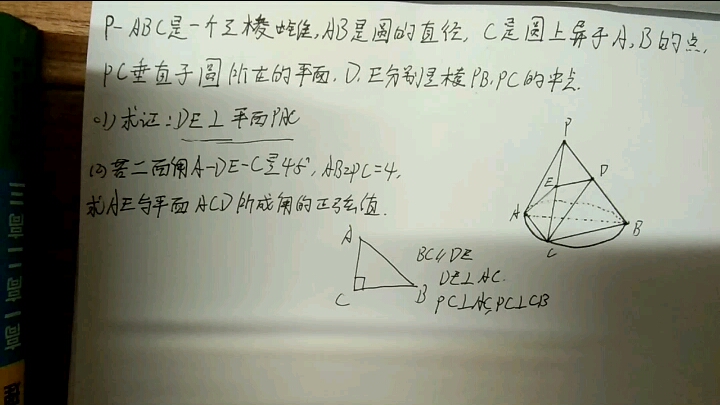 P-ABC是一个三棱锥,AB是圆的直径,C是圆上异于A,B的点,
PC垂直于圆所在的平面.D.E分别是棱PB.PC的中点.
(1)求证:DE⊥平面PAC
(2)若二面角A-DE-C是45°,AB=PC=4,
求AE与平面ACD所成角的正弦值.
P
E
D
A
B
C
A
C
B
BC∥DE
DE⊥AC.
PC⊥AC,PC⊥CB